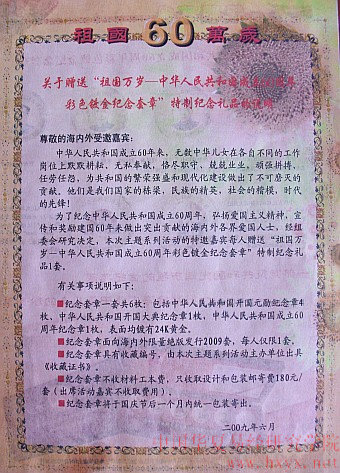 祖國60萬歲
关于赠送“祖国万岁—中华人民共和国成立60周年
彩色镀金纪念套章”特制纪念礼品的说明
尊敬的海内外受邀嘉宾：
中华人民共和国成立60年来，无数中华儿女在各自不同的工作
岗位上默默耕耘、无私奉献，恪尽职守、兢兢业业，顽强拼搏、
任劳任怨，为共和国的繁荣强盛和现代化建设做出了不可磨灭的
贡献。他们是我们国家的栋梁，民族的精英，社会的楷模，时代
的先锋！
为了纪念中华人民共和国成立60周年，弘扬爱国主义精神，宣
传和奖励建国60年来做出突出贡献的海内外各界爱国人士，经组
委会研究决定，本次主题系列活动的特邀嘉宾每人赠送“祖国万
岁—中华人民共和国成立60周年彩色镀金纪念套章”特制纪念礼
品1套。
有关事项说明如下：
■纪念套章一套共6枚：包括中华人民共和国开国元勋纪念章4
枚、中华人民共和国开国大典纪念章1枚，中华人民共和国成立60
周年纪念章1枚，表面均镀有24K黄金。
■纪念套章面向海内外限量绝版发行2009套，每人仅限1套。
■纪念套章具有收藏编号，由本次主题系列活动主办单位出具
《收藏证书》。
■纪念套章不收材料工本费，只收取设计和包装邮寄费180元/
套（出席活动嘉宾不收取费用）。
■纪念套章将于国庆节后一个月内统一包装寄出。
二00九年六月